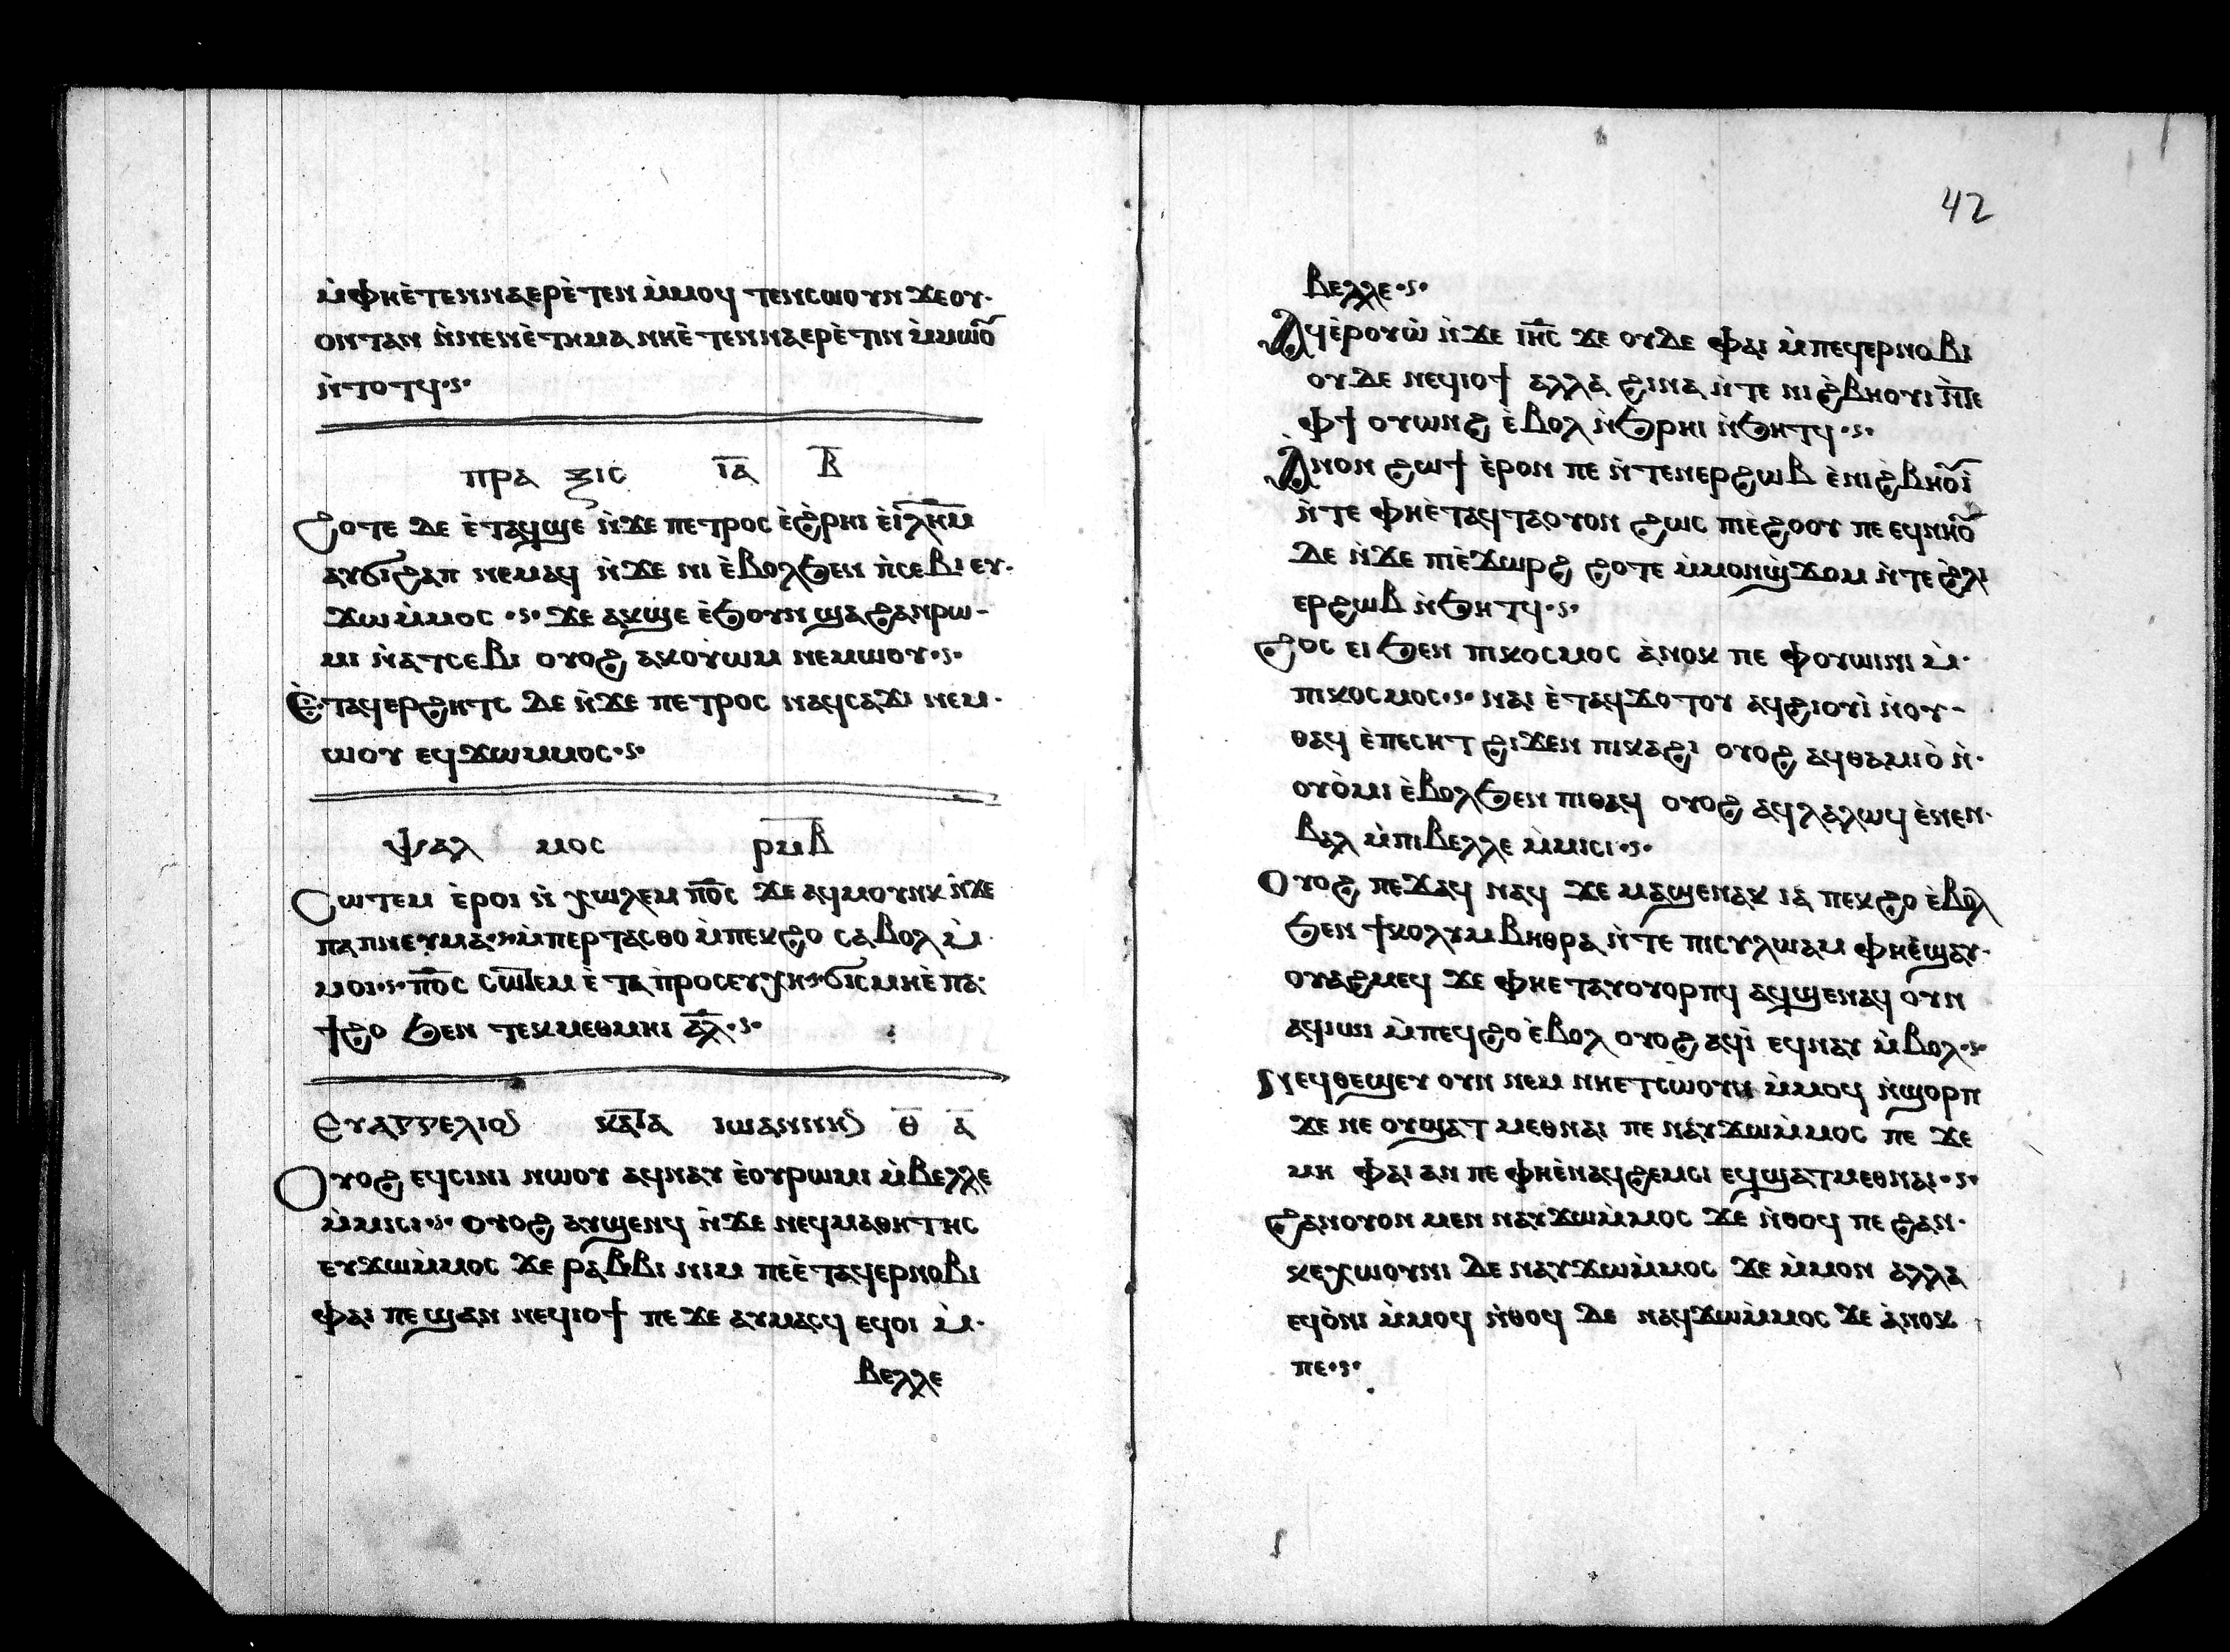 ⲙ̀ⲫⲏⲉ̀ⲧⲉⲛⲛⲁⲉⲣⲉ̀ⲧⲉⲛ ⲙ̀ⲙⲟϥ ⲧⲉⲛⲥⲱⲟⲩⲛ ϫⲉⲟⲩ·
ⲟⲛⲧⲁⲛ ⲛ̀ⲛⲉⲛⲉ̀ⲧⲏⲙⲁ ⲛⲏⲉ̀ⲧⲉⲛⲛⲁⲉⲣⲉ̀ⲧⲓⲛ ⲙ̀ⲙⲱⲟ̅
ⲛ̀ⲧⲟⲧϥ·ⲋ·
ⲡⲣⲁ ⲝⲓⲥ ⲓ̅ⲁ̅ ⲃ̅
ϩⲟⲧⲉ ⲇⲉ ⲉ̀ⲧⲁϥϣⲉ ⲛ̀ϫⲉ ⲡⲉⲧⲣⲟⲥ ⲉ̀ϩ̀ⲣⲏⲓ ⲉ̀ⲓ̅ⲗ̅ⲏ̅ⲙ̅
ⲁⲩϭⲓϩⲁⲡ ⲛⲉⲙⲁϥ ⲛ̀ϫⲉ ⲛⲓ ⲉ̀ⲃⲟⲗϧⲉⲛ ⲡ̀ⲥⲉⲃⲓ ⲉⲩ·
ϫⲱⲙ̀ⲙⲟⲥ ·ⲋ· ϫⲉ ⲁⲕϣⲉ ⲉ̀ϧⲟⲩⲛ ϣⲁϩⲁⲛⲣⲱ-
ⲙⲓ ⲛ̀ⲁⲧⲥⲉⲃⲓ ⲟⲩⲟϩ ⲁⲕⲟⲩⲱⲙ ⲛⲉⲙⲱⲟⲩ·ⲋ·
ⲉ̀ⲧⲁϥⲉⲣϩⲏⲧⲥ ⲇⲉ ⲛ̀ϫⲉ ⲡⲉⲧⲣⲟⲥ ⲛⲁϥⲥⲁϫⲓ ⲛⲉⲙ·
ⲱⲟⲩ ⲉϥϫⲱⲙⲙⲟⲥ·ⲋ·
ⲯⲁⲗ ⲙⲟⲥ ⲣⲙⲃ̅
ⲥⲱⲧⲉⲙ ⲉ̀ⲣⲟⲓ ⲛ̀ ⲭⲱⲗⲉⲙ ⲡ̅ⲟ̅ⲥ̅ ϫⲉ ⲁϥⲙⲟⲩⲛⲕ ⲛ̀ϫⲉ
ⲡⲁ ⲡⲛⲉⲩⲙⲁ·ⲋ·ⲙ̀ⲡⲉⲣⲧⲁⲥⲑⲟ ⲙ̀ⲡⲉⲕϩⲟ ⲥⲁⲃⲟⲗ ⲙ̀·
ⲙⲟⲓ·ⲋ· ⲡ̅ⲟ̅ⲥ̅ ⲥⲱⲧⲉⲙ ⲉ̀ ⲧⲁ ⲡ̀ⲣⲟⲥⲉⲩⲭⲏ·ⲋ·ϭⲓⲥⲙⲏⲉ̀ ⲡⲁ·
ϯϩⲟ ϧⲉⲛ ⲧⲉⲕⲙⲉⲑⲙⲏⲓ ⲁ̅ⲗ̅·ⲋ·
ⲉⲩⲁⲅⲅⲉⲗⲓⲟⲛ ⲕⲁⲧⲁ ⲓⲱⲁⲛⲛⲏⲛ ⲑ̅ ⲁ̅
ⲟⲩⲟϩ ⲉϥⲥⲓⲛⲓ ⲛⲱⲟⲩ ⲁϥⲛⲁⲩ ⲉ̀ⲟⲩⲣⲱⲙⲓ ⲙ̀ⲃⲉⲗⲗⲉ
ⲙ̀ⲙⲓⲥⲓ·ⲋ· ⲟⲩⲟϩ ⲁⲩϣⲉⲛϥ ⲛ̀ϫⲉ ⲛⲉϥⲙⲁⲑⲏⲧⲏⲥ
ⲉⲩϫⲱⲙ̀ⲙⲟⲥ ϫⲉ ⲣⲁⲃⲃⲓ ⲛⲓⲙ ⲡⲉⲉ̀ⲧⲁϥⲉⲣⲛⲟⲃⲓ
ⲫⲁⲓ ⲡⲉ ϣⲁⲛ ⲛⲉϥⲓⲟϯ ⲡⲉ ϫⲉ ⲁⲩⲙⲁⲥϥ ⲉϥⲟⲓ ⲙ̀·
ⲃⲉⲗⲗⲉ
42
ⲃⲉⲗⲗⲉ·ⲋ·
ⲁϥⲉ̀ⲣⲟⲩⲱ̀ ⲛ̀ϫⲉ ⲓ̅ⲏ̅ⲥ̅ ϫⲉ ⲟⲩⲇⲉ ⲫⲁⲓ ⲙ̀ⲡⲉϥⲉⲣⲛⲟⲃⲓ
ⲟⲩⲇⲉ ⲛⲉϥⲓⲟϯ ⲁⲗⲗⲁ ϩⲓⲛⲁ ⲛ̀ⲧⲉ ⲛⲓϩ̀ⲃⲏⲟⲩⲓ ⲛ̀ⲧⲉ
ⲫϯ ⲟⲩⲱⲛϩ ⲉ̀ⲃⲟⲗ ⲛ̀ϧⲣⲏⲓ ⲛ̀ϧⲏⲧϥ·ⲋ·
ⲁⲛⲟⲛ ϩⲱϯ ⲉ̀ⲣⲟⲛ ⲡⲉ ⲛ̀ⲧⲉⲛⲉⲣϩⲱⲃ ⲉ̀ⲛⲓϩ̀ⲃⲏⲟ̅ⲓ
ⲛ̀ⲧⲉ ⲫⲏⲉ̀ⲧⲁϥⲧⲁⲟⲩⲟⲛ ϩⲱⲥ ⲡⲓⲉ̀ϩⲟⲟⲩ ⲡⲉ ⲉϥⲛⲏⲟ̅
ⲇⲉ ⲛ̀ϫⲉ ⲡⲓⲉ̀ϫⲱⲣϩ ϩⲟⲧⲉ ⲙ̀ⲙⲟⲛϣ̀ϫⲟⲙ ⲛ̀ⲧⲉ ϩ̀ⲗⲓ
ⲉⲣϩⲱⲃ ⲛ̀ϧⲏⲧϥ·ⲋ·
ϩⲟⲥ ⲉⲓ ϧⲉⲛ ⲡⲓⲕⲟⲥⲙⲟⲥ ⲁ̀ⲛⲟⲕ ⲡⲉ ⲫⲟⲩⲱⲓⲛⲓ ⲙ̀·
ⲡⲓⲕⲟⲥⲙⲟⲥ·ⲋ· ⲛⲁⲓ ⲉ̀ⲧⲁϥϫⲟⲧⲟⲩ ⲁϥϩⲓⲟⲩⲓ̀ ⲛ̀ⲟⲩ-
ⲑⲁϥ ⲉ̀ⲡⲉⲥⲏⲧ ϩⲓϫⲉⲛ ⲡⲓⲕⲁϩⲓ ⲟⲩⲟϩ ⲁϥⲑⲁⲙⲓⲟ̀ ⲛ̀·
ⲟⲩⲟ̀ⲙⲓ ⲉ̀ⲃⲟⲗϧⲉⲛ ⲡⲓⲑⲁϥ ⲟⲩⲟϩ ⲁϥⲗⲁⲗⲱϥ ⲉ̀ⲛⲉⲛ·
ⲃⲁⲗ ⲙ̀ⲡⲓⲃⲉⲗⲗⲉ ⲙ̀ⲙⲓⲥⲓ·ⲋ·
ⲟⲩⲟϩ ⲡⲉϫⲁϥ ⲛⲁϥ ϫⲉ ⲙⲁϣⲉⲛⲁⲕ ⲓⲁ̀ ⲡⲉⲕϩⲟ ⲉ̀ⲃⲟⲗ
ϧⲉⲛ ϯⲕⲟⲗⲩⲙⲃⲏⲑⲣⲁ ⲛ̀ⲧⲉ ⲡⲓⲥⲩⲗⲱⲁⲙ ⲫⲏⲉ̀ϣⲁⲩ·
ⲟⲩⲁϩⲙⲉϥ ϫⲉ ⲫⲏⲉⲧⲁⲩⲟⲩⲟⲣⲡϥ ⲁϥϣⲉⲛⲁϥ ⲟⲩⲛ
ⲁϥⲓⲱⲓ ⲙ̀ⲡⲉϥϩⲟ ⲉ̀ⲃⲟⲗ ⲟⲩⲟϩ ⲁϥⲓ̀ ⲉϥⲛⲁⲩ ⲙ̀ⲃⲟⲗ·ⲋ·
ⲛⲉϥⲑⲉϣⲉⲩ ⲟⲩⲛ ⲛⲉⲙ ⲛⲏⲉⲧⲥⲱⲟⲩⲛ ⲙ̀ⲙⲟϥ ⲛ̀ϣⲟⲣⲡ
ϫⲉ ⲛⲉ ⲟⲩϣⲁⲧ ⲙⲉⲑⲛⲁⲓ ⲡⲉ ⲛⲁⲩϫⲱⲙ̀ⲙⲟⲥ ⲡⲉ ϫⲉ
ⲙⲏ ⲫⲁⲓ ⲁⲛ ⲡⲉ ⲫⲏⲉ̀ⲛⲁϥϩⲉⲙⲥⲓ ⲉϥϣⲁⲧⲙⲉⲑⲛⲁⲓ·ⲋ·
ϩⲁⲛⲟⲩⲟⲛ ⲙⲉⲛ ⲛⲁⲩϫⲱⲙ̀ⲙⲟⲥ ϫⲉ ⲛ̀ⲑⲟϥ ⲡⲉ ϩⲁⲛ·
ⲕⲉⲭⲱⲟⲩⲛⲓ ⲇⲉ ⲛⲁⲩϫⲱⲙ̀ⲙⲟⲥ ϫⲉ ⲙ̀ⲙⲟⲛ ⲁⲗⲗⲁ
ⲉϥⲟ̀ⲛⲓ ⲙ̀ⲙⲟϥ ⲛ̀ⲑⲟϥ ⲇⲉ ⲛⲁϥϫⲱⲙ̀ⲙⲟⲥ ϫⲉ ⲁ̀ⲛⲟⲕ
ⲡⲉ·ⲋ·